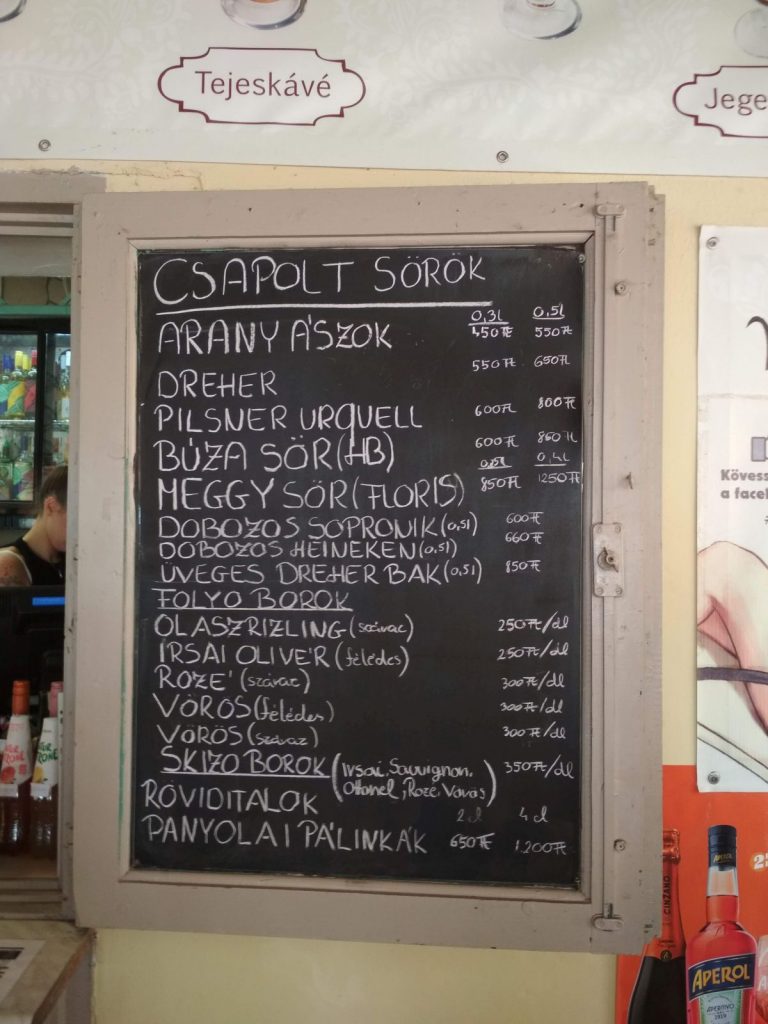 Tejeskávé
Jege
CSAPOLT SÖRÖK
0,3l 0,5l
ARANY ÁSZOK 450 Ft 550 Ft
DREHER 550 Ft 650 Ft
PILSNER URQUELL 600 Ft 800 Ft
BÚZA SÖR (HB) 600 Ft 860 Ft
0,4l
MEGGY SÖR (FLORIS) 850 Ft 1250 Ft
DOBOZOS SOPRONIK (0,5l) 600 Ft
DOBOZOS HEINEKEN (0,5l) 660 Ft
ÜVEGES DREHER BAK (0,5l) 850 Ft
FOLYO BOROK
OLASZRIZLING (száraz) 250 Ft/dl
IRSAI OLIVÉR (félédes) 250 Ft/dl
ROZÉ (száraz) 300 Ft/dl
VÖRÖS (félédes) 300 Ft/dl
VÖRÖS (száraz) 300 Ft/dl
SKIZO BOROK (Irsai, Sauvignon, 350 Ft/dl
Ottonel, Roze, Vörös)
RÖVIDITALOK 2cl 4cl
PANYOLAI PÁLINKÁK 650 Ft 1.200 Ft
Kövess
a face
CINZANO
APEROL
APEROL
APERITIVO
1919
25